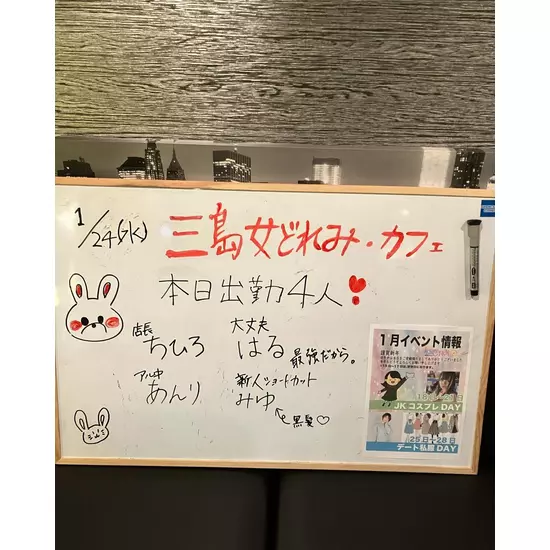 1/24(水)
三島女どれみ・カフェ
本日出勤4人
店長
ちひろ
大丈夫
はる 最強だから。
アル中
あんり
新人ショートカット
みゆ
黒髪♡
1月イベント情報
謹賀新年
JK コスプレ DAY
25日→28日
デート私服 DAY